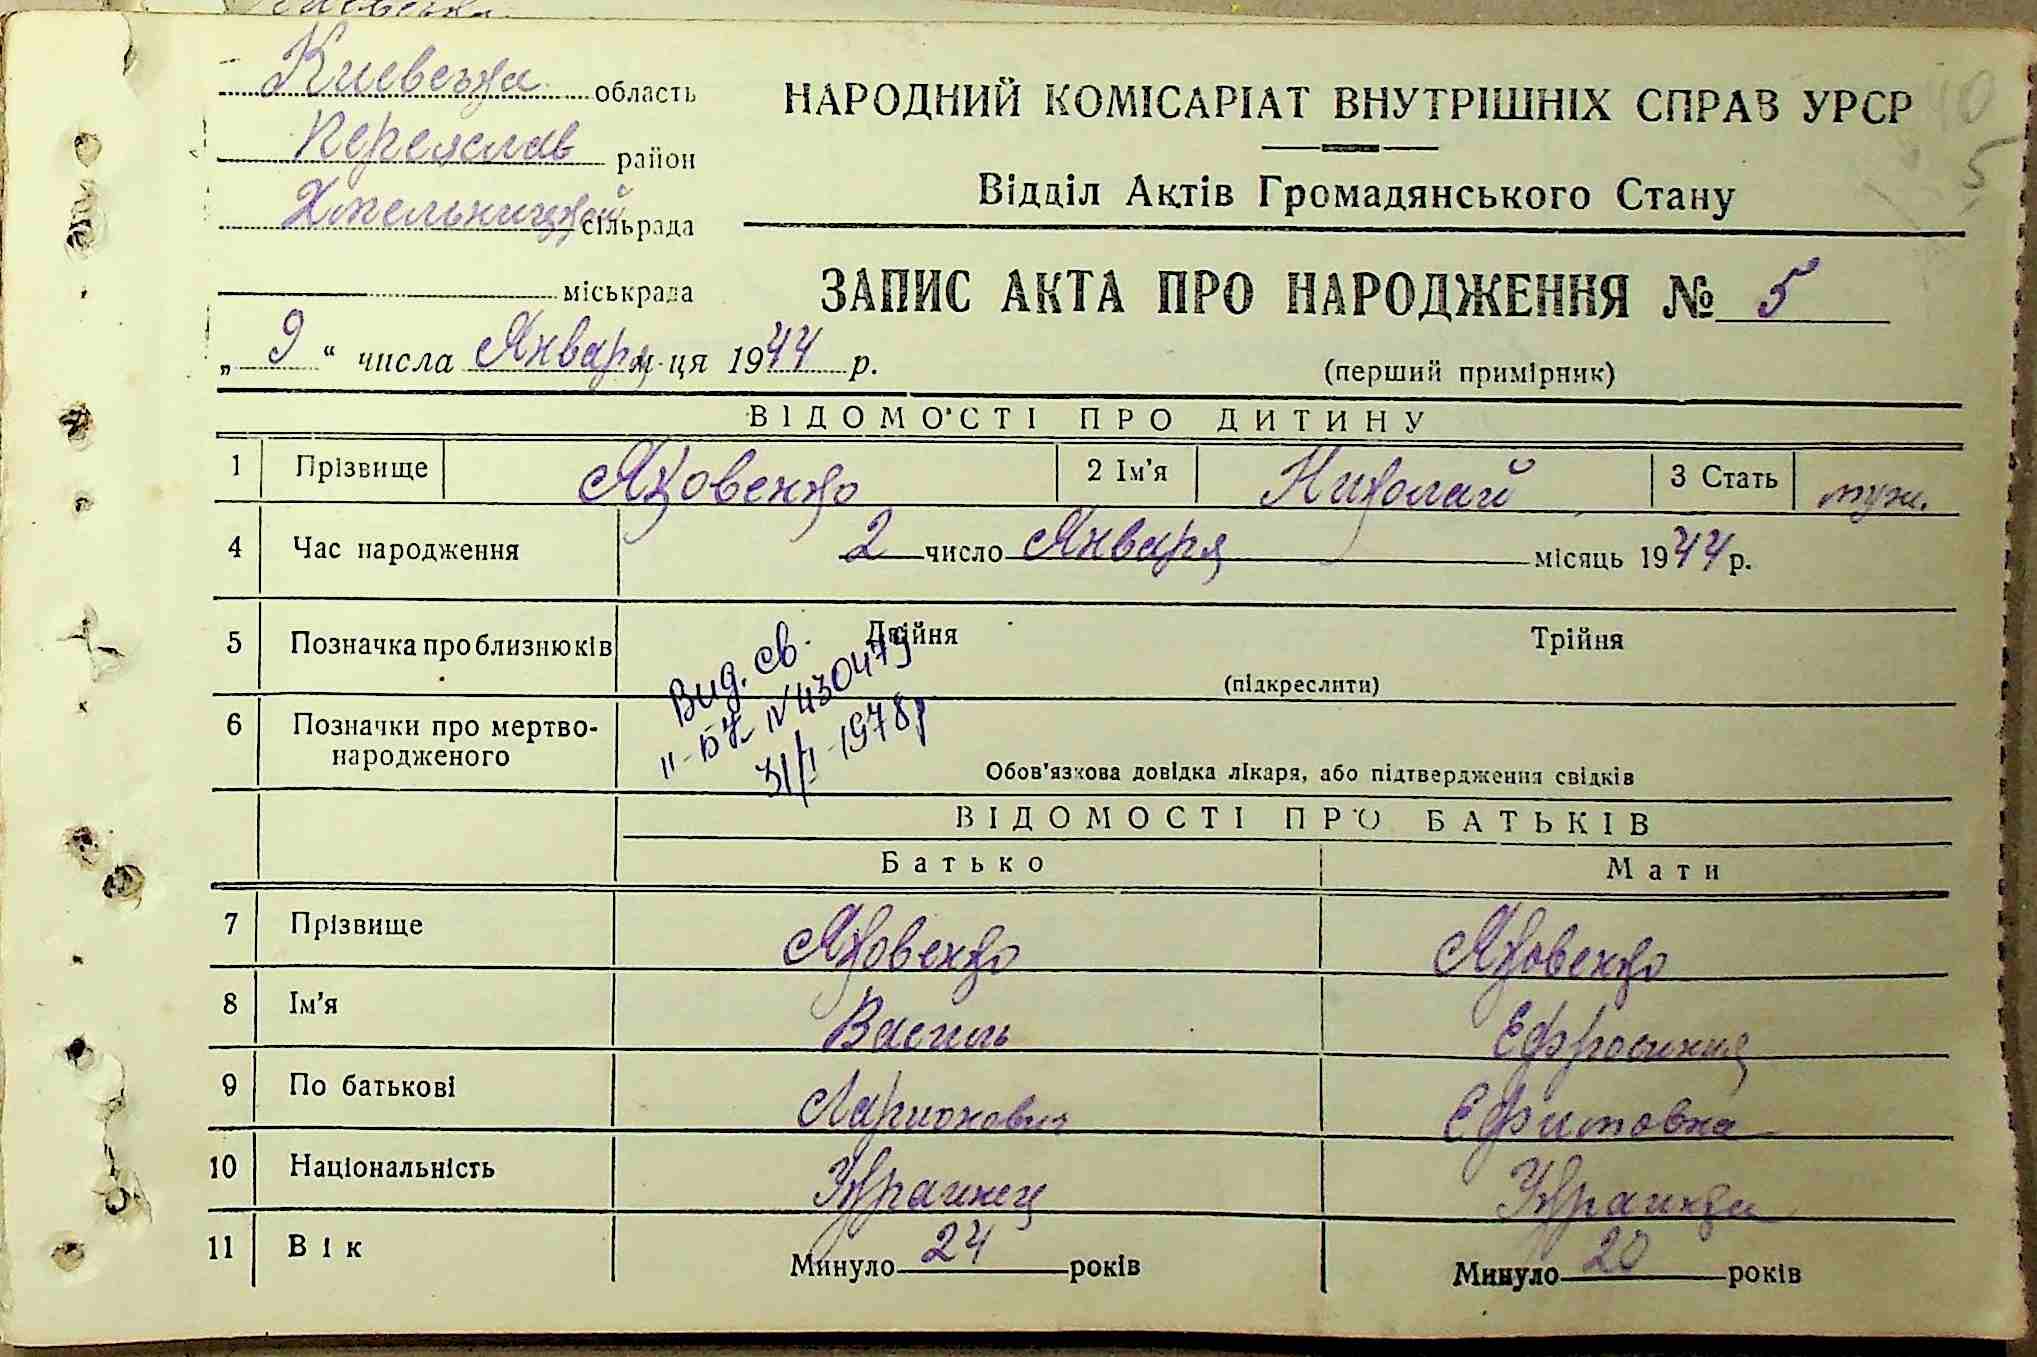 Киевська область
Переяслав район
Хмельницкий сільрада
міськрада
НАРОДНИЙ КОМІСАРІАТ ВНУТРІШНІХ СПРАВ УРСР
Відділ Актів Громадянського Стану
ЗАПИС АКТА ПРО НАРОДЖЕННЯ № 5
5
„ 9 “ числа Января м-ця 1944 р.
(перший примірник)
ВІДОМОСТІ ПРО ДИТИНУ
1 Прізвище Яковенко 2 Ім'я Николай 3 Стать муж.
4 Час народження 2 число Января місяць 1944 р.
5 Позначка про близнюків Двійня Трійня
(підкреслити)
Вид. св.
II-БК N 430479
31/I-1978р
6 Позначки про мертво-
народженого
Обов'язкова довідка лікаря, або підтвердження свідків
ВІДОМОСТІ ПРО БАТЬКІВ
Батько Мати
7 Прізвище Яковенко Яковенко
8 Ім'я Василь Ефросиния
9 По батькові Ларионович Ефимовна
10 Національність Украинец Украинка
11 Вік Минуло 24 років Минуло 20 років